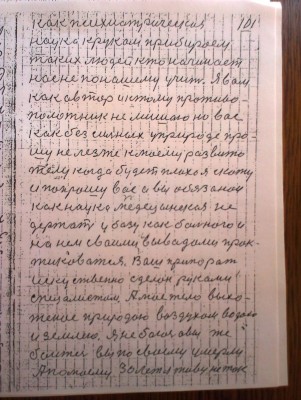 как психиатрическая 101
наука к рукам прибираем
таких людей кто начинает
нас не по нашему учит. Я вам
как автор и этому противо-
положник не мишаю но вас
как без сильных у природе про-
шу не лезте к моему развито
телу когда будет плохо я скажу
и попрошу вас а вы обязаны
как наука медецинская не
держат у базу как больного и
на нем своими выводами прак-
тиковатся. Ваш припорат
исуственно сделон руками
специалистом А мое тело выхо-
женое природою воздухом водою
и землею. Я не болея а вы же
болити вы по своему умерли
А по моему 30 лет я живу не так